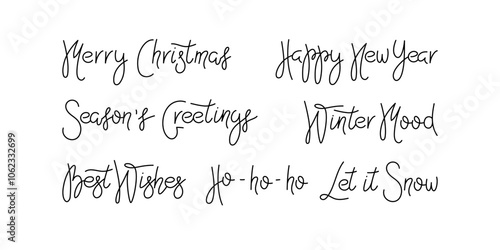 Merry Christmas Happy New Year
Season's Greetings Winter Mood
Best Wishes Ho-ho-ho Let it Snow
Adobe Stock | #1062332699